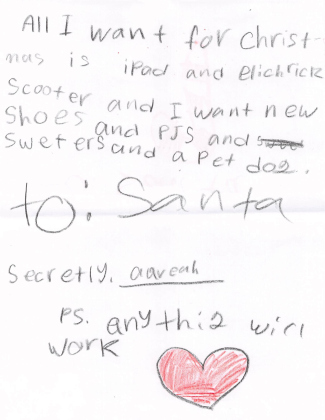 All I want for christ-
mas is ipad and elichrick
Scooter and I want new
Shoes and PJS and
Sweters and a Pet dog.
to: Santa
Secretly, aaveah
PS. anything will
work